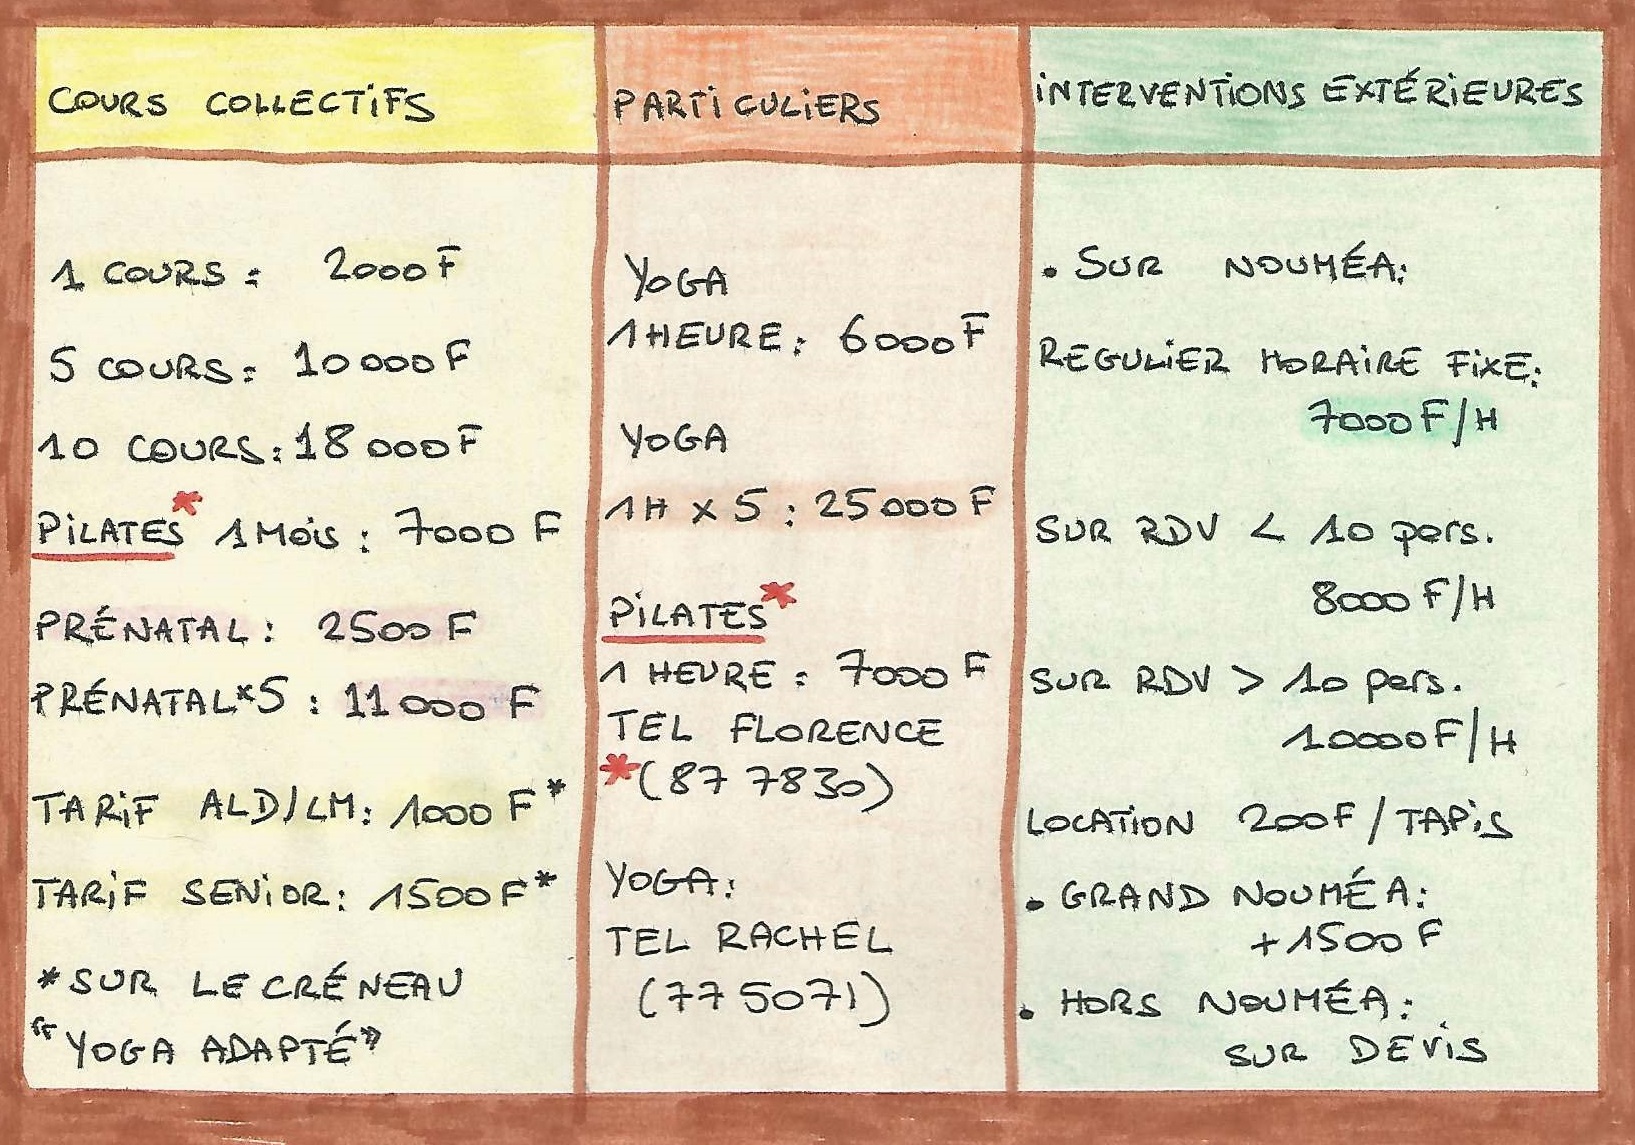 COURS COLLECTIFS
1 COURS : 2000 F
5 COURS : 10 000 F
10 COURS : 18 000 F
PILATES* 1 MOIS : 7000 F
PRÉNATAL : 2500 F
PRÉNATAL x5 : 11 000 F
TARIF ALD/LM : 1000 F*
TARIF SENIOR : 1500 F*
*SUR LE CRÉNEAU
"YOGA ADAPTÉ"
PARTICULIERS
YOGA
1 HEURE : 6000 F
YOGA
1H x 5 : 25 000 F
PILATES*
1 HEURE : 7000 F
TEL FLORENCE
*(87 7830)
YOGA :
TEL RACHEL
(77 5071)
INTERVENTIONS EXTÉRIEURES
• SUR NOUMÉA :
REGULIER HORAIRE FIXE :
7000 F/H
SUR RDV < 10 pers.
8000 F/H
SUR RDV > 10 pers.
10000 F/H
LOCATION 200F / TAPIS
• GRAND NOUMÉA :
+ 1500 F
• HORS NOUMÉA :
SUR DEVIS